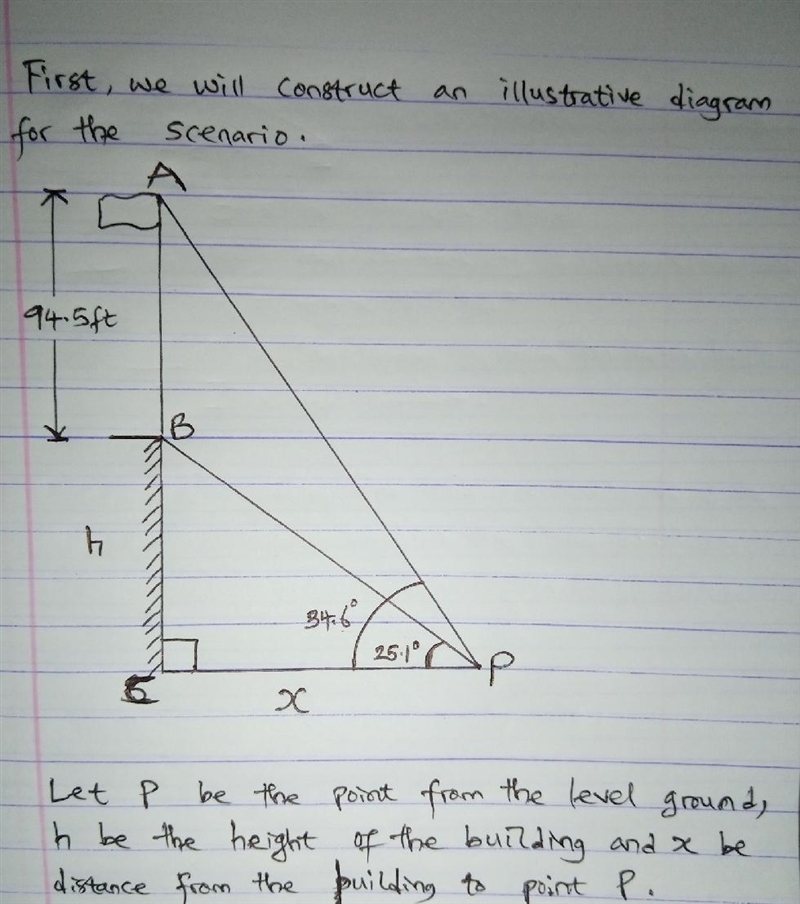 First, we will construct an illustrative diagram
for the scenario.
A
94.5ft
B
h
34.6°
25.1°
P
x
Let P be the point from the level ground,
h be the height of the building and x be
distance from the building to point P.